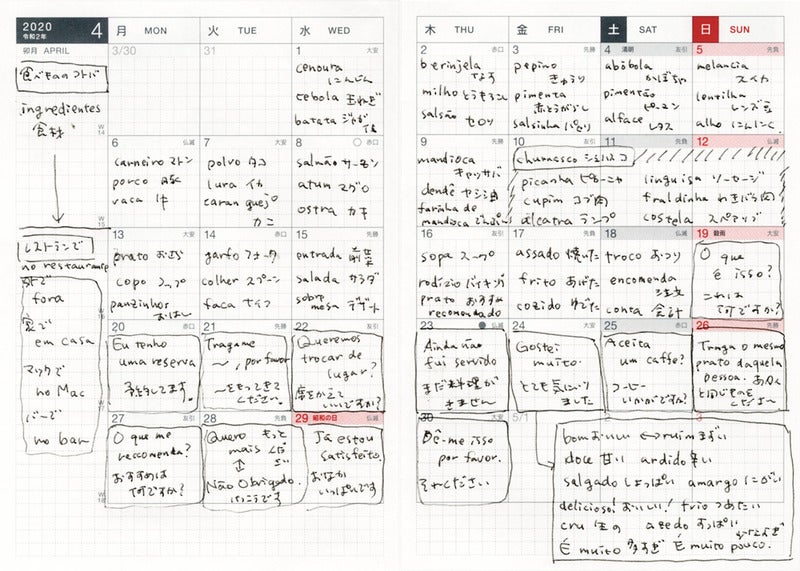 2020
令和2年
4
月 MON
火 TUE
水 WED
木 THU
金 FRI
土 SAT
日 SUN
卯月 APRIL
食べもののコトバ
ingredientes
食材
W 14
3/30
31
1 大安
cenoura
にんじん
cebola 玉ねぎ
batata ジャガイモ
2 赤口
berinjela
なす
milho とうもろこし
salsão セロリ
3 先勝
pepino
きゅうり
pimenta
赤とうがらし
salsinha パセリ
4 清明 友引
abóbola
かぼちゃ
pimentão
ピーマン
alface レタス
5 先負
melancia
スイカ
lentilha
レンズ豆
alho にんにく
W 15
6 仏滅
carneiro マトン
porco 豚
vaca 牛
7 大安
polvo タコ
lura イカ
caranguejo
カニ
8 仏滅
salmão サーモン
atum マグロ
ostra カキ
9 先勝
mandioca
キャッサバ
dendê ヤシ油
farinha de
mandioca
10 友引
churrasco シュハスコ
picanha ピカーニャ
cupim コブ肉
alcatra ランプ
11 先負
linguisa ソーセージ
fraldinha わきばら肉
costela スペアリブ
12 仏滅
レストランで
no restaurante
外で
fora
家で
em casa
マックで
no Mac
バーで
no bar
13 大安
prato おさら
copo コップ
panzinhos
おはし
14 赤口
garfo フォーク
colher スプーン
faca ナイフ
15 先勝
entrada 前菜
salada サラダ
sobremesa デザート
16 友引
sopa スープ
rodizio バイキング
prato おすすめ
recomendado
17 先負
assado 焼いた
frito あげた
cozido ゆでた
18 仏滅
troco おつり
encomenda
注文
conta 会計
19 穀雨 大安
O que
é isso?
これは
何ですか?
20 赤口
Eu tenho
uma reserva
予約してます。
21 先勝
Tragame
〜, por favor
〜をもってきて
ください。
22 友引
Queremos
trocar de
lugar?
席をかえて
いいですか?
23 先負
Ainda não
fui servido
まだ料理が
きません
24 大安
Gostei
muito.
とても気にいり
ました
25 赤口
Aceita
um caffe?
コーヒー
いかがですか?
26 先勝
Traga o mesmo
prato daquela
pessoa. あの人
と同じものを
ください
27 友引
O que me
reccomenda?
おすすめは
何ですか?
28 先負
Quero もっと
mais ください
Não Obrigado.
けっこうです
29 昭和の日 仏滅
Já estou
satisfeito.
おなか
いっぱいです
W 18
30 大安
Dê-me isso
por favor.
それください
5/1
bom おいしい ↔ ruim まずい
doce 甘い ardido 辛い
salgado しょっぱい amargo にがい
delicioso! おいしい! frio つめたい
cru 生の azedo すっぱい
É muito 多すぎ É muito pouco.